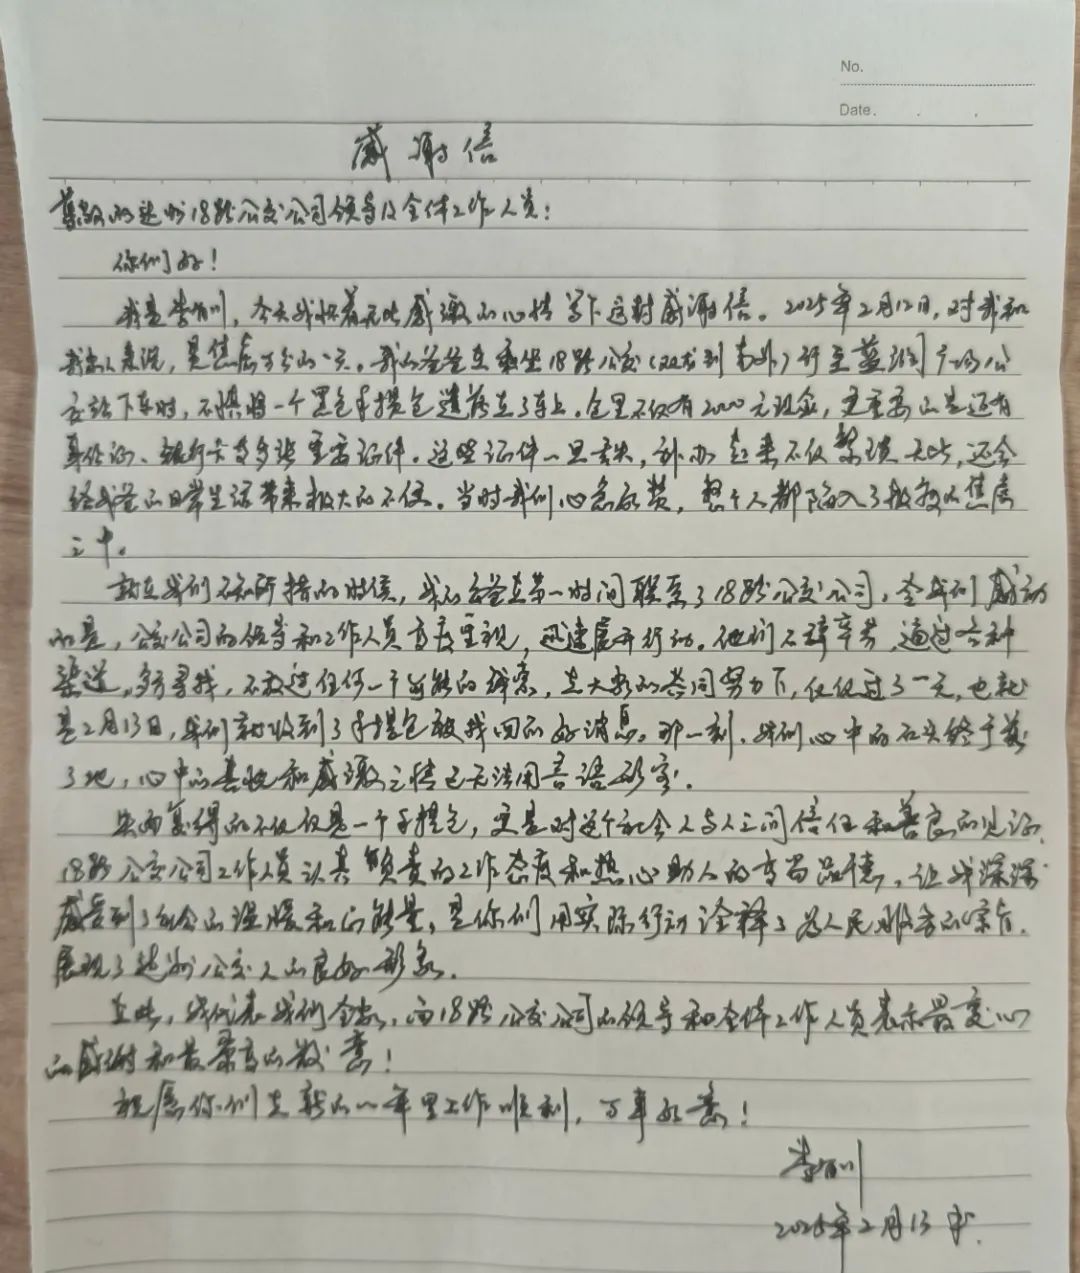 No.
Date.
感谢信
尊敬的达州18路公交公司领导及全体工作人员：
你们好！
我是李有川，今天我怀着无比感激的心情写下这封感谢信。2025年2月12日，对我和
我家人来说，是焦虑万分的一天。我的爸爸在乘坐18路公交（双龙到南外）行至蓝润广场公
交站下车时，不慎将一个黑色手提包遗落在了车上。包里不仅有2000元现金，更重要的是还有
身份证、银行卡等多张重要证件。这些证件一旦丢失，补办起来不仅繁琐无比，还会
给我爸的日常生活带来极大的不便。当时我们心急如焚，整个人都陷入了极度的焦虑
之中。
就在我们不知所措的时候，我的爸爸在第一时间联系了18路公交公司，令我们感动
的是，公交公司的领导和工作人员高度重视，迅速展开行动。他们不辞辛劳，通过各种
渠道，多方寻找，不放过任何一个可能的线索，在大家的共同努力下，仅仅过了一天，也就
是2月13日，我们就收到了手提包被找回的好消息。那一刻，我们心中的石头终于落
了地，心中的喜悦和感激之情已无法用言语形容。
失而复得的不仅仅是一个手提包，更是对这个社会人与人之间信任和善良的见证，
18路公交公司工作人员认真负责的工作态度和热心助人的高尚品德，让我深深
感受到了社会的温暖和正能量，是你们用实际行动诠释了为人民服务的宗旨，
展现了达州公交人的良好形象。
在此，我代表我们全家，向18路公交公司的领导和全体工作人员表示最衷心
的感谢和最崇高的敬意！
祝愿你们在新的一年里工作顺利，万事如意！
李有川
2025年2月13书.